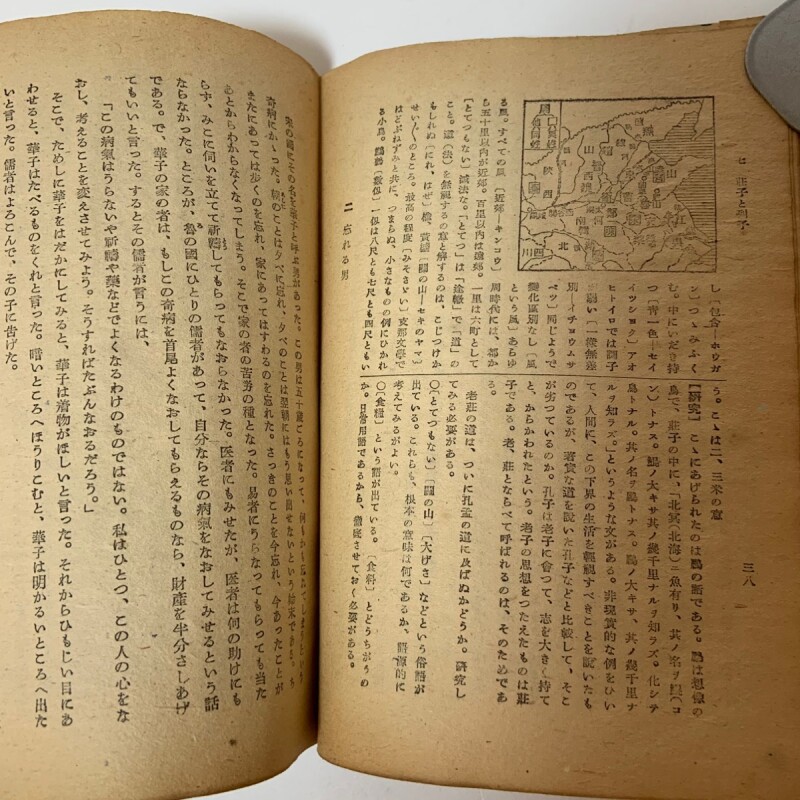 七 莊子と列子
三八
し〔包含―ホウガ
ン〕つゝみふく
む。中にいだき持
つ〔青一色―セイ
イツショク〕アオ
ヒトイロでは調子
が弱い〔一樣無差
別―イチヨウムサ
ベツ〕同じようで
變化區別なし〔風
という風〕あらゆ
る風。すべての風〔近郊―キンコウ〕周時代には、都か
ら五十里以内が近郊。百里以内は遠郊。一里は六町として
〔とてつもない〕滅法な。「とてつ」は「途轍」で「道」の
こと。道(法)を無視するの意と解するのは、こじつけか
もしれぬ〔にれ、はぜ〕楡、黄櫨〔關の山―セキのヤマ〕
のところ。最高の程度〔みそさざい〕支那文學で
はどぶねずみと共に、つまらぬ、小さなものの例にひかれ
る小鳥。鷦鷯〔數仭〕一仭は八尺とも七尺とも四尺ともい
う。こゝは二、三米の意
【研究】こゝにあげられたのは鵬の話である。鵬は想像の
鳥で、莊子の中に、「北冥(北海)ニ魚有リ、其ノ名ヲ鯤(コ
ン)トナス。鯤ノ大キサ其ノ幾千里ナルヲ知ラズ。化シテ
鳥トナル。其ノ名ヲ鵬トナス。鵬ノ大キサ、其ノ幾千里ナ
ルヲ知ラズ。」というような文がある。非現實的な例をひい
て、人間に、この下界の生活を輕視すべきことを說いたも
のであるが、着實な道を說いた孔子などと比較して、そこ
が劣つているのか。孔子は老子に會つて、志を大きく持て
と、からかわれたという。老子の思想をつたえたものは莊
子である。老、莊とならべて呼ばれるのは、そのためであ
老莊の道は、ついに孔孟の道に及ばぬかどうか。研究し
てみる必要がある。
〇〔とてつもない〕〔關の山〕〔大げさ〕などという俗語が
出ている。これらも、根本の意味は何であるか、語源的に
考えてみるがよい。
〇〔食糧〕という語が出ている。〔食料〕とどうちがうの
か。日常用語であるから、徹底させておく必要がある。
二 忘れる男
宋の國にその名を華子と呼ぶ男があつた。この男は五十歳ごろになつて、何もかも忘れてしまうという
奇病にかゝつた。朝のことは夕べに忘れ、夕べのことは翌朝にはもう思い出せないという始末である。ち
またにあつては歩くのを忘れ、家にあつてはすわるのを忘れた。さつきのことを今忘れ、今あつたことが
あとからわからなくなつてしまう。そこで家の者の苦勞の種となつた。易者にうらなつてもらつても當た
らず、みこに伺いを立てて祈禱してもらつてもなおらなかつた。醫者にもみせたが、醫者は何の助けにも
ならなかつた。ところが、魯の國にひとりの儒者があつて、自分ならその病氣をなおしてみせるという話
である。で、華子の家の者は、もしこの奇病を首尾よくなおしてもらえるものなら、財産を半分さしあげ
てもいいと言つた。するとその儒者が言うには、
「この病氣はうらないや祈禱や藥などでよくなるわけのものではない。私はひとつ、この人の心をな
おし、考えることを變えさせてみよう。そうすればたぶんなおるだろう。」
そこで、ためしに華子をはだかにしてみると、華子は着物がほしいと言つた。それからひもじい目にあ
わせると、華子はたべるものをくれと言つた。暗いところへほうりこむと、華子は明かるいところへ出た
いと言つた。儒者はよろこんで、その子に告げた。